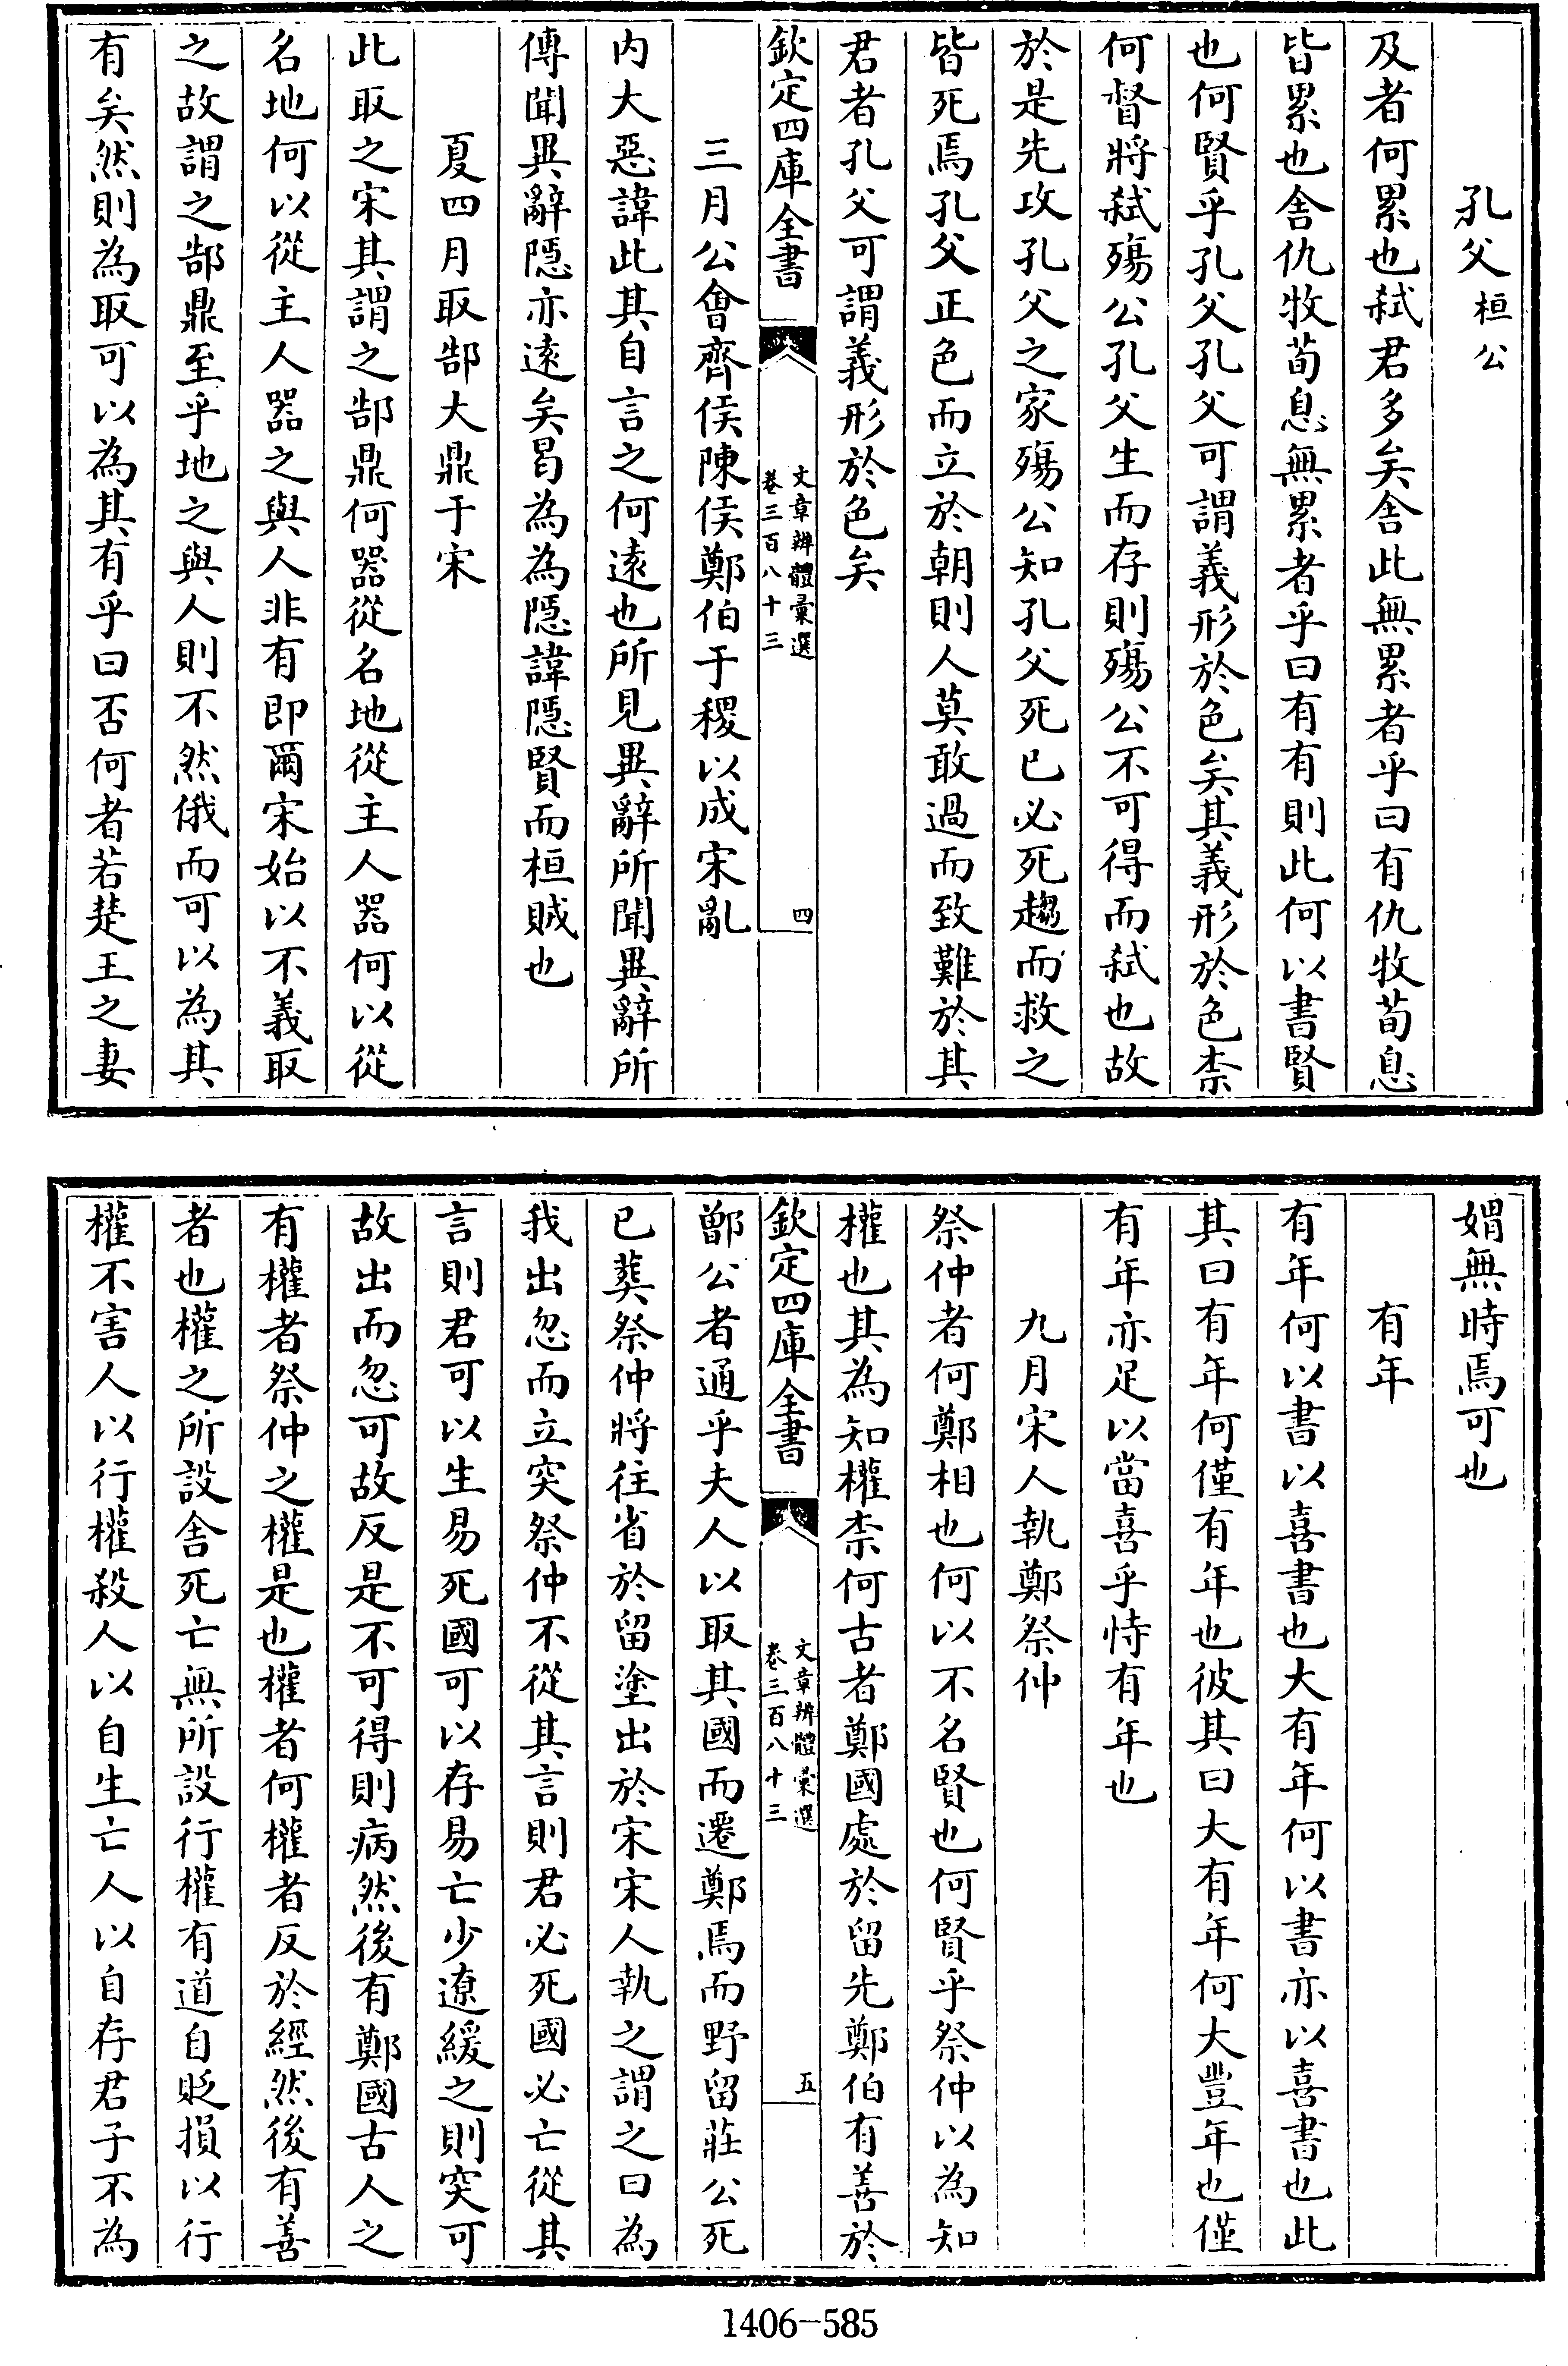 孔父桓公
及者何累也弑君多矣舍此無累者乎曰有仇牧荀息
皆累也舍仇牧荀息無累者乎曰有有則此何以書賢
也何賢乎孔父孔父可謂義形於色矣其義形於色柰
何督將弑殤公孔父生而存則殤公不可得而弑也故
於是先攻孔父之家殤公知孔父死已必死趨而救之
皆死焉孔父正色而立於朝則人莫敢過而致難於其
君者孔父可謂義形於色矣
欽定四庫全書
文章辨體彙選
卷三百八十三
四
三月公會齊侯陳侯鄭伯于稷以成宋亂
内大惡諱此其自言之何逺也所見異辭所聞異辭所
傳聞異辭隱亦逺矣曷為為隱諱隱賢而桓賊也
夏四月取郜大鼎于宋
此取之宋其謂之郜鼎何器從名地從主人器何以從
名地何以從主人器之與人非有即爾宋始以不義取
之故謂之郜鼎至乎地之與人則不然俄而可以為其
有矣然則為取可以為其有乎曰否何者若楚王之妻
媦無時焉可也
有年
有年何以書以喜書也大有年何以書亦以喜書也此
其曰有年何僅有年也彼其曰大有年何大豐年也僅
有年亦足以當喜乎恃有年也
九月宋人執鄭祭仲
祭仲者何鄭相也何以不名賢也何賢乎祭仲以為知
權也其為知權柰何古者鄭國處於留先鄭伯有善於
欽定四庫全書
文章辨體彙選
卷三百八十三
五
鄶公者通乎夫人以取其國而遷鄭焉而野留莊公死
已葬祭仲將往省於留塗出於宋宋人執之謂之曰為
我出忽而立突祭仲不從其言則君必死國必亡從其
言則君可以生易死國可以存易亡少遼緩之則突可
故出而忽可故反是不可得則病然後有鄭國古人之
有權者祭仲之權是也權者何權者反於經然後有善
者也權之所設舍死亡無所設行權有道自貶損以行
權不害人以行權殺人以自生亡人以自存君子不為
1406-585